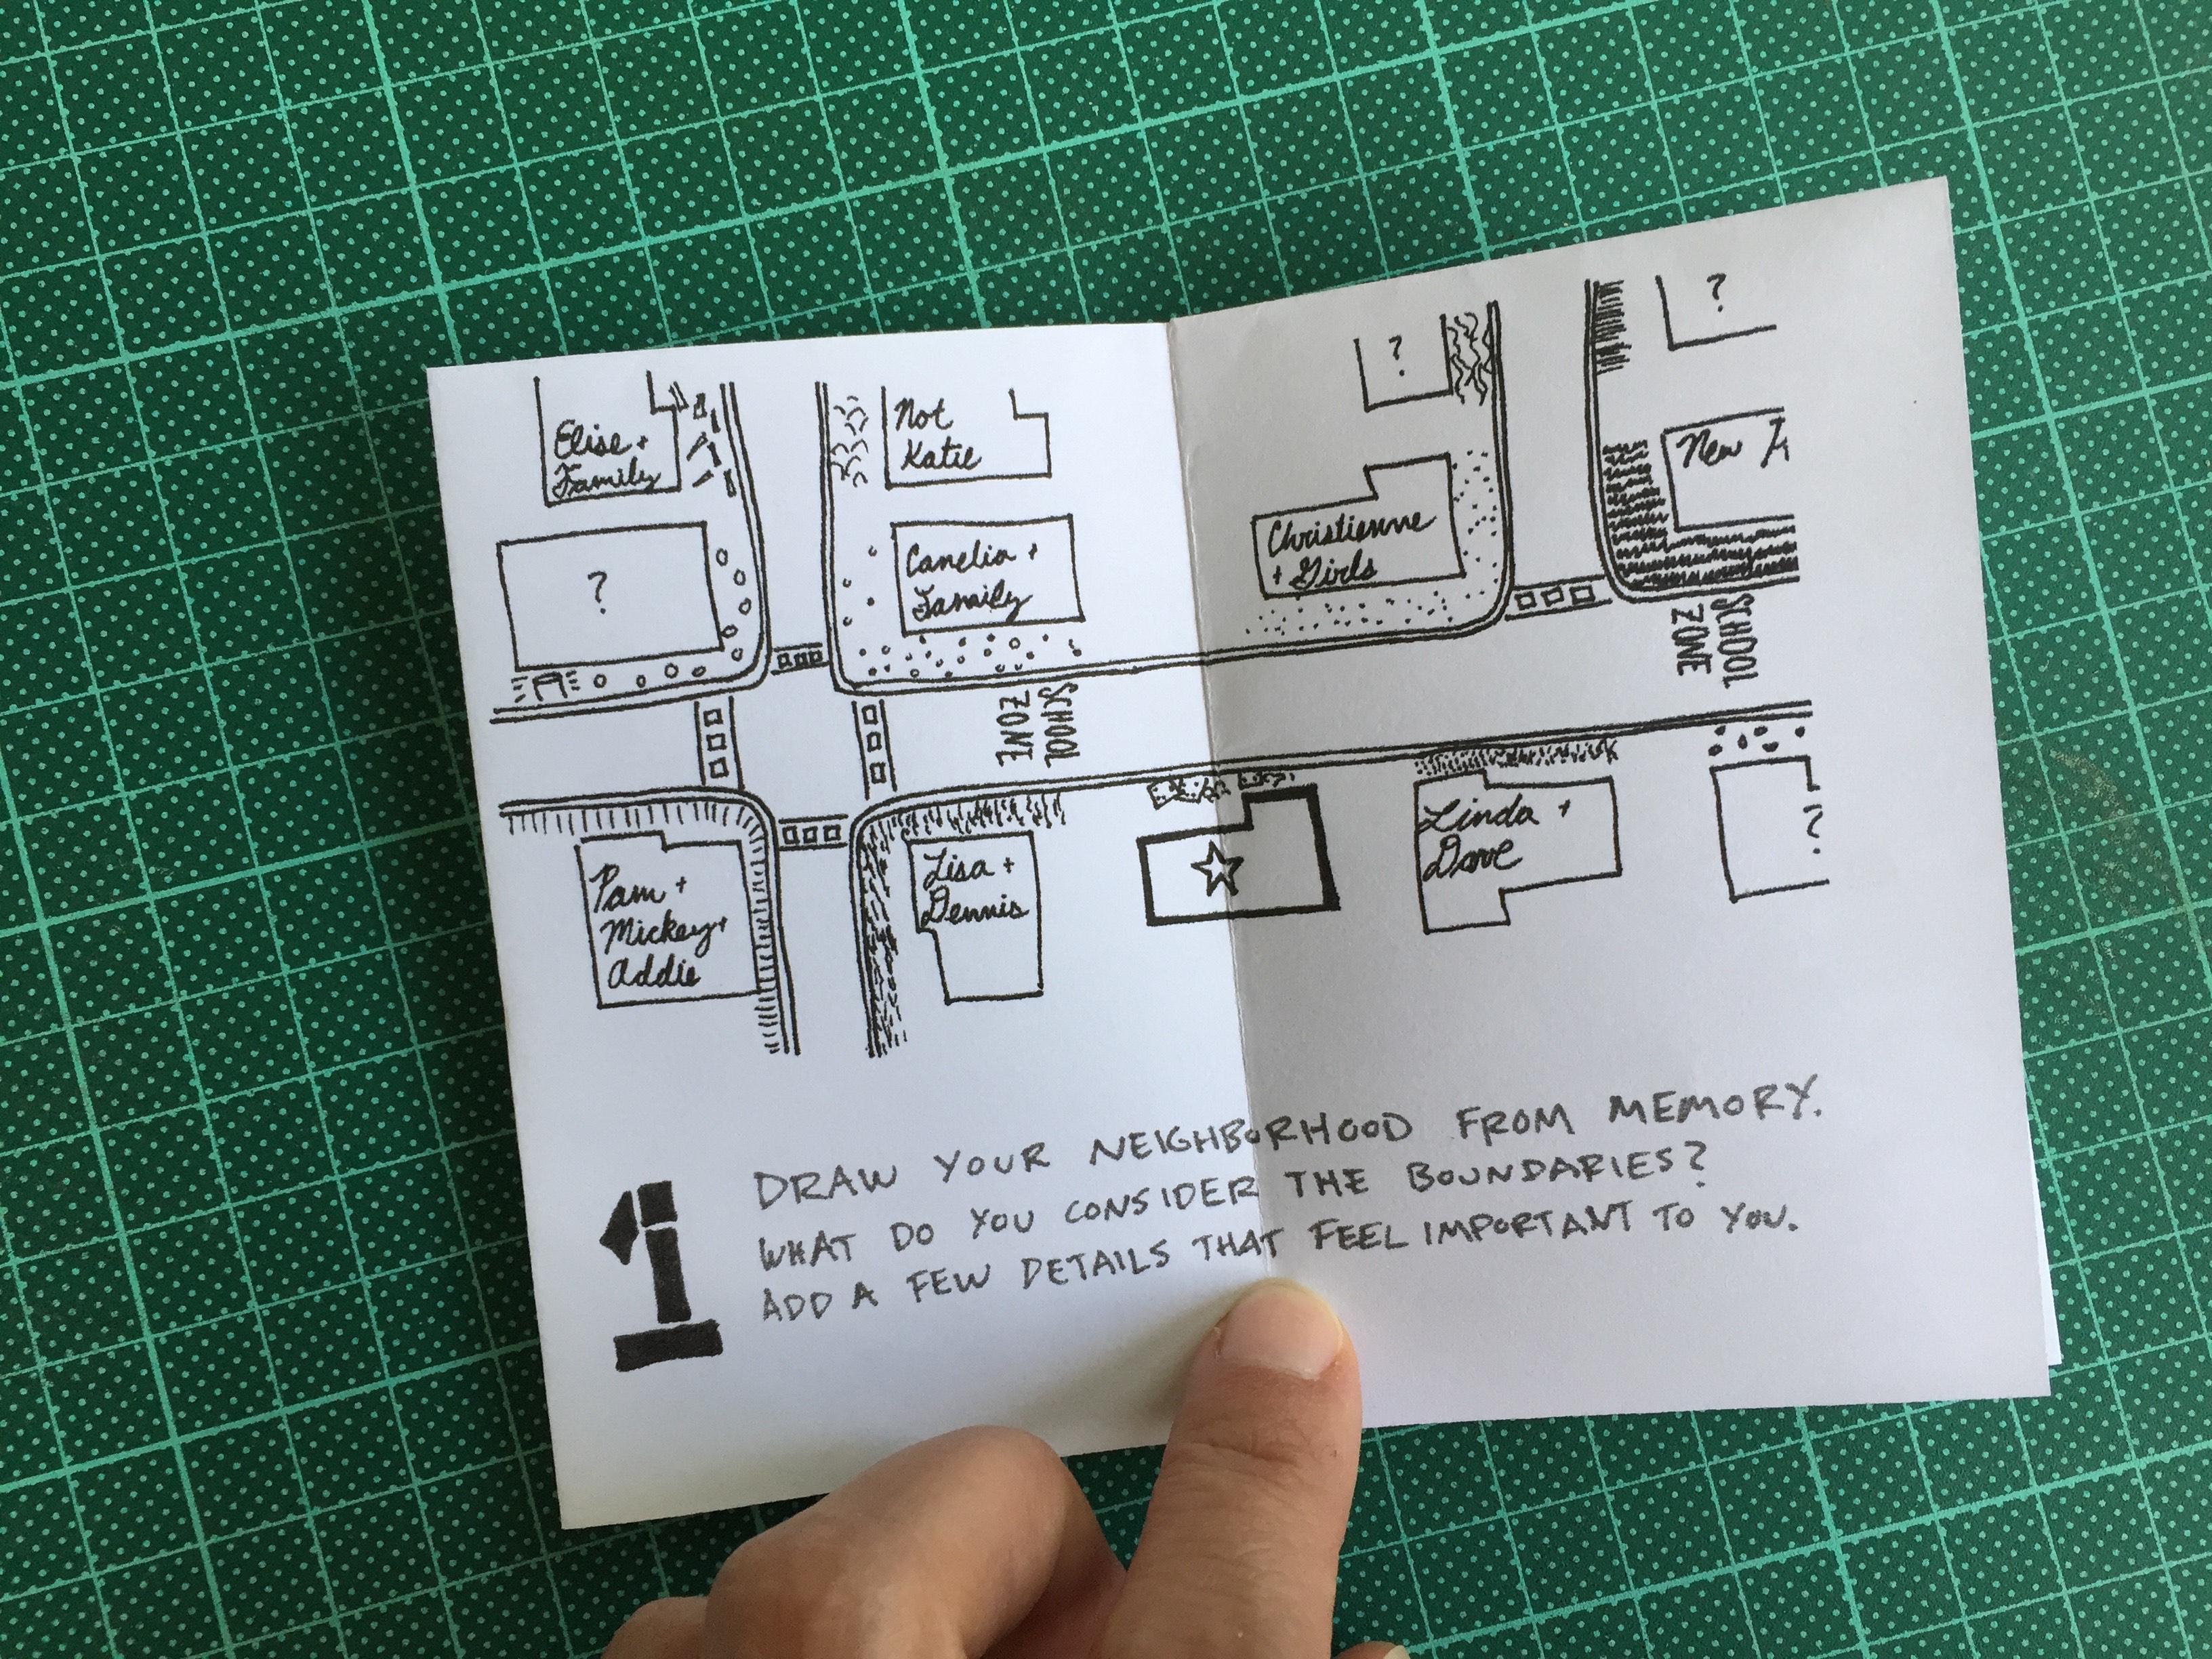 Elise +
Family
Not
Katie
?
?
New
?
Canelia +
Family
Christienne
+ Girls
SCHOOL
ZONE
SCHOOL
ZONE
Pam +
Mickey +
Addie
Lisa +
Dennis
Linda +
Dave
?
1
DRAW YOUR NEIGHBORHOOD FROM MEMORY.
WHAT DO YOU CONSIDER THE BOUNDARIES?
ADD A FEW DETAILS THAT FEEL IMPORTANT TO YOU.